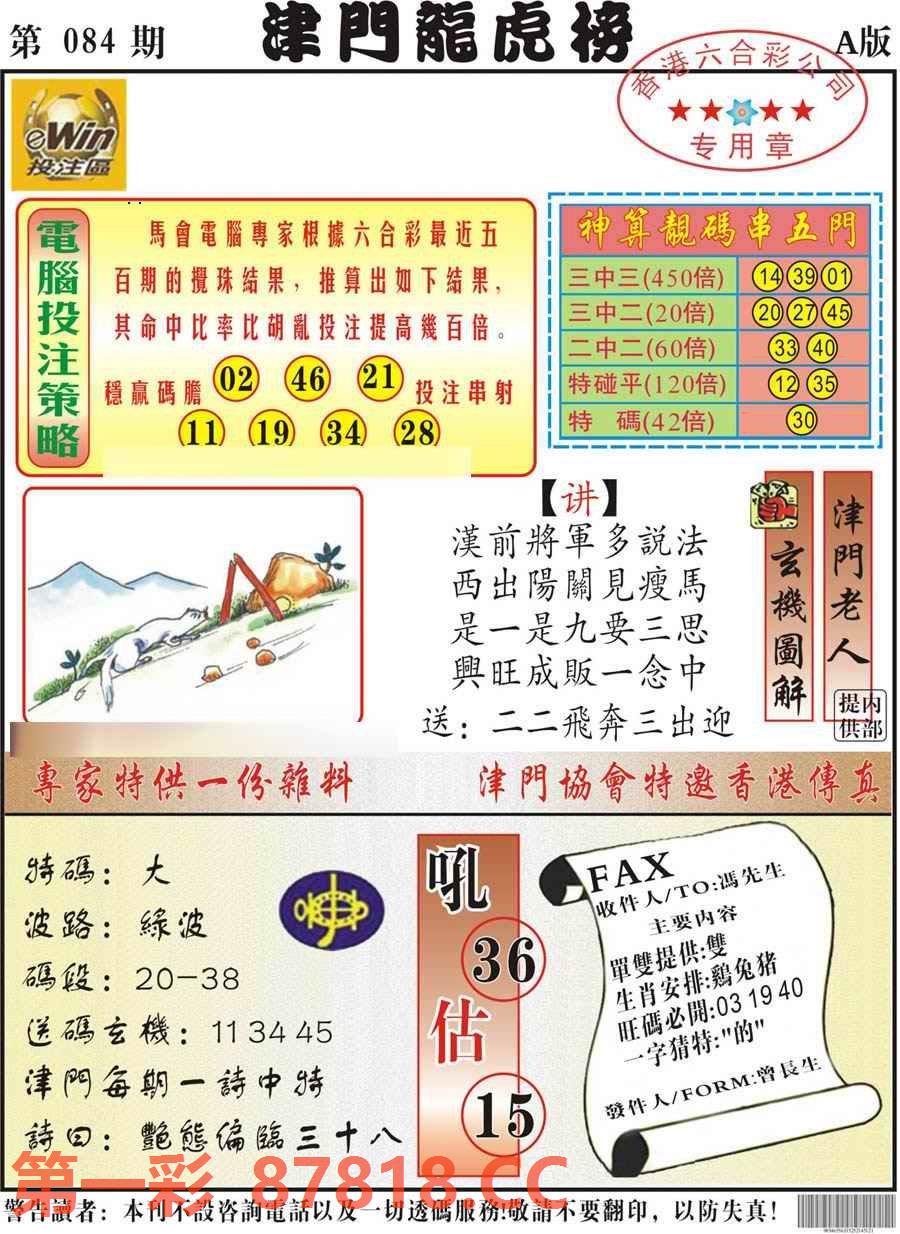 第 084 期
津門龍虎榜
A版
香港六合彩公司
专用章
eWin
投注區
電腦投注策略
馬會電腦專家根據六合彩最近五
百期的攪珠結果，推算出如下結果，
其命中比率比胡亂投注提高幾百倍。
穩贏碼膽 02 46 21 投注串射
11 19 34 28
神算靚碼串五門
三中三(450倍) 14 39 01
三中二(20倍) 20 27 45
二中二(60倍) 33 40
特碰平(120倍) 12 35
特 碼(42倍) 30
【讲】
漢前將軍多説法
西出陽關見瘦馬
是一是九要三思
興旺成販一念中
送：二二飛奔三出迎
玄機圖解
津門老人
提内
供部
專家特供一份雜料
津門協會特邀香港傳真
特碼：大
波路：綠波
碼段：20-38
送碼玄機：11 34 45
津門每期一詩中特
詩曰：艷態偏臨三十八
吼
36
估
15
FAX
收件人/TO:馮先生
主要内容
單雙提供:雙
生肖安排:鷄兔猪
旺碼必開:03 19 40
一字猜特:"的"
發件人/FORM:曾長生
第一彩 87818.CC
警告讀者：本刊不設咨詢電話以及一切透碼服務!敬請不要翻印，以防失真!